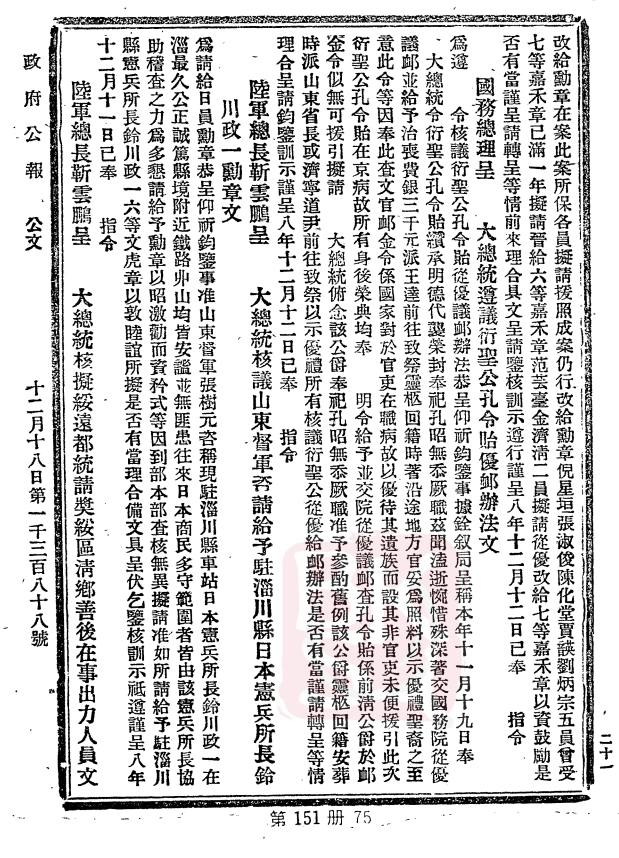 改給勳章在案此案所保各員擬請援照成案仍行改給勳章倪星垣張淑俊陳化堂賈謨劉炳宗五員曾受
七等嘉禾章已滿一年擬請晉給六等嘉禾章范芸臺金濟清二員擬請從優改給七等嘉禾章以資鼓勵是
否有當謹呈請轉呈等情前來理合具文呈請鑒核訓示遵行謹呈八年十二月十二日已奉　指令
國務總理呈　大總統遵議衍聖公孔令貽優邺辦法文
為遵　令核議衍聖公孔令貽從優議邺辦法恭呈仰祈鈞鑒事據銓叙局呈稱本年十一月十九日奉
大總統令衍聖公孔令貽纘承明德代襲榮封奉祀孔昭無忝厥職茲聞溘逝惋惜殊深著交國務院從優
議邺並給予治喪費銀三千元派王達前往致祭靈柩回籍時著沿途地方官妥為照料以示優禮聖裔之至
意此令等因奉此查文官邺金令係國家對於官吏在職病故以優待其遺族而設其非官吏未便援引此次
衍聖公孔令貽在京病故所有身後榮典均奉　明令給予並交院從優議邺查孔令貽係前清公爵於邺
金令似無可援引擬請　大總統俯念該公爵奉祀孔昭無忝厥職准予參酌舊例該公爵靈柩回籍安葬
時派山東省長或濟寧道尹前往致祭以示優禮所有核議衍聖公從優給邺辦法是否有當謹請轉呈等情
理合呈請鈞鑒訓示謹呈八年十二月十二日已奉　指令
陸軍總長靳雲鵬呈　大總統核議山東督軍咨請給予駐淄川縣日本憲兵所長鈴
川政一勳章文
為請給日員勳章恭呈仰祈鈞鑒事准山東督軍張樹元咨稱現駐淄川縣車站日本憲兵所長鈴川政一在
淄最久公正誠篤縣境附近鐵路丱山均皆安謐並無匪患往來日本商民多守範圍者皆由該憲兵所長協
助稽查之力為多懇請給予勳章以昭激勸而資矜式等因到部本部查核無異擬請准如所請給予駐淄川
縣憲兵所長鈴川政一六等文虎章以敦睦誼所擬是否有當理合備文具呈伏乞鑒核訓示祗遵謹呈八年
十二月十一日已奉　指令
陸軍總長靳雲鵬呈　大總統核擬綏遠都統請奬綏區清鄉善後在事出力人員文
政府公報　公文　十二月十八日第一千三百八十八號
二十一
第 151 册 75